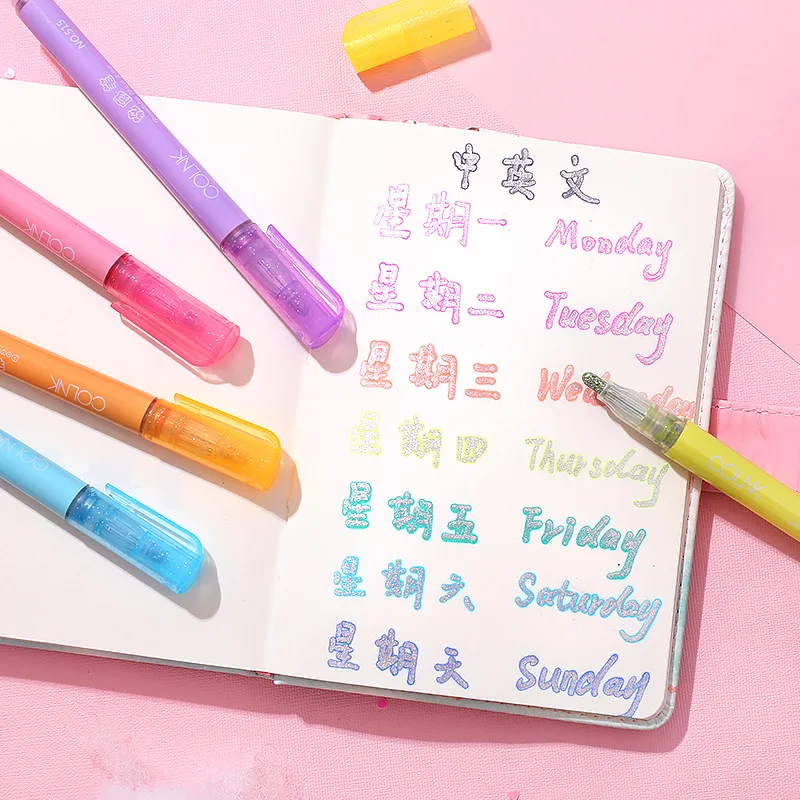 NO.515
COLNK
COLNK
COLNK
COLNK
COLNK
中英文
星期一 Monday
星期二 Tuesday
星期三 Wednesday
星期四 Thursday
星期五 Friday
星期六 Saturday
星期天 Sunday